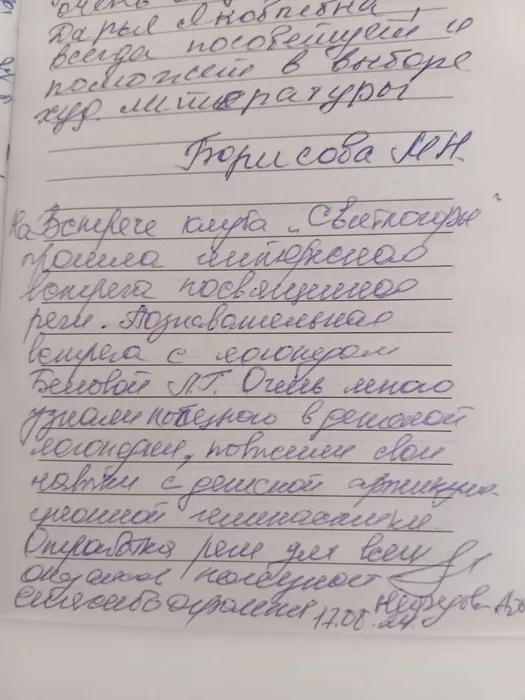 очень
Дарья Яковлевна,
всегда посоветует и
поможет в выборе
худ. литературы
Борисова М.Н.
На Встрече клуба „Светлогоры"
прошла интересная
встреча посвящённая
речи. Познавательная
встреча с логопедом
Беловой Л.Г. Очень много
узнали полезного в детской
логопедии, повысили свои
навыки с детской артикуля-
ционной гимнастике
Отработка речи для всех
оказалась полезной
спасибо огромное 17.08.24. Нефедова